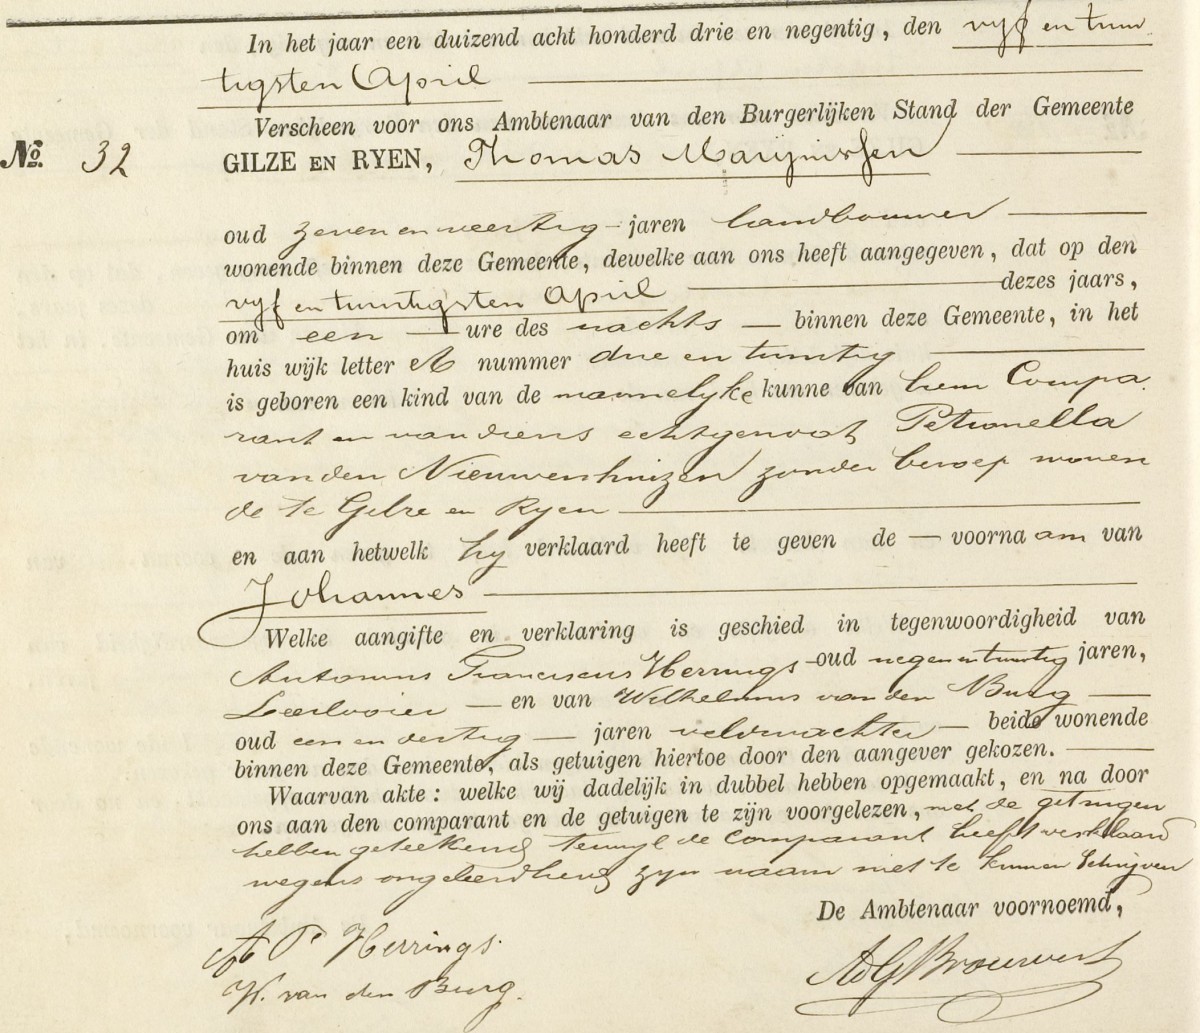 In het jaar een duizend acht honderd drie en negentig, den vyf en twin
tigsten April
Verscheen voor ons Ambtenaar van den Burgerlijken Stand der Gemeente
No. 32 GILZE EN RYEN, Thomas Marijnissen
oud zeven en veertig jaren landbouwer
wonende binnen deze Gemeente, dewelke aan ons heeft aangegeven, dat op den
vyf en twintigsten April dezes jaars,
om een ure des nachts binnen deze Gemeente, in het
huis wijk letter A nummer drie en twintig
is geboren een kind van de mannelyke kunne van hem Compa
rant en van diens echtgenoot Petronella
van den Nieuwenhuizen zonder beroep wonen
de te Gilze en Ryen
en aan hetwelk hy verklaard heeft te geven de voornaam van
Johannes
Welke aangifte en verklaring is geschied in tegenwoordigheid van
Antonius Franciscus Herrings oud negen en twintig jaren,
Leerlooier en van Wilhelmus van den Burg
oud een en dertig jaren veldwachter beide wonende
binnen deze Gemeente, als getuigen hiertoe door den aangever gekozen.
Waarvan akte: welke wij dadelijk in dubbel hebben opgemaakt, en na door
ons aan den comparant en de getuigen te zijn voorgelezen, met de getuigen
hebben geteekend terwyl de comparant heeft verklaard
wegens ongeleerdheid zyn naam niet te kunnen schryven
De Ambtenaar voornoemd,
A F Herrings.
W. van den Burg.